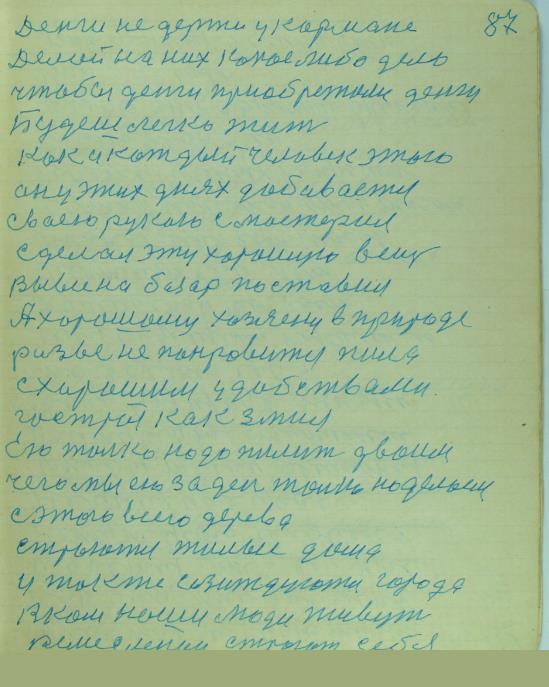 87
Денги не держи у кормане
Делой на них какое либо дело
чтобы денги приобретали денги
Будеш легко жит
Как и каждый человек этого
он у этих днях добивается
Своею рукою смастерил
Сделал эту хорошую вещ
вывел на базар поставил
А хорошому хозяену в природе
разве не понровится пила
с хорошим удобствами
гострой как змия
Ею толко надо пилит двоим
чего мы ею за ден толко
с этого всего дерева
строются жилые дома
и также созиждуются города
В ком наши люди живут
строют себя